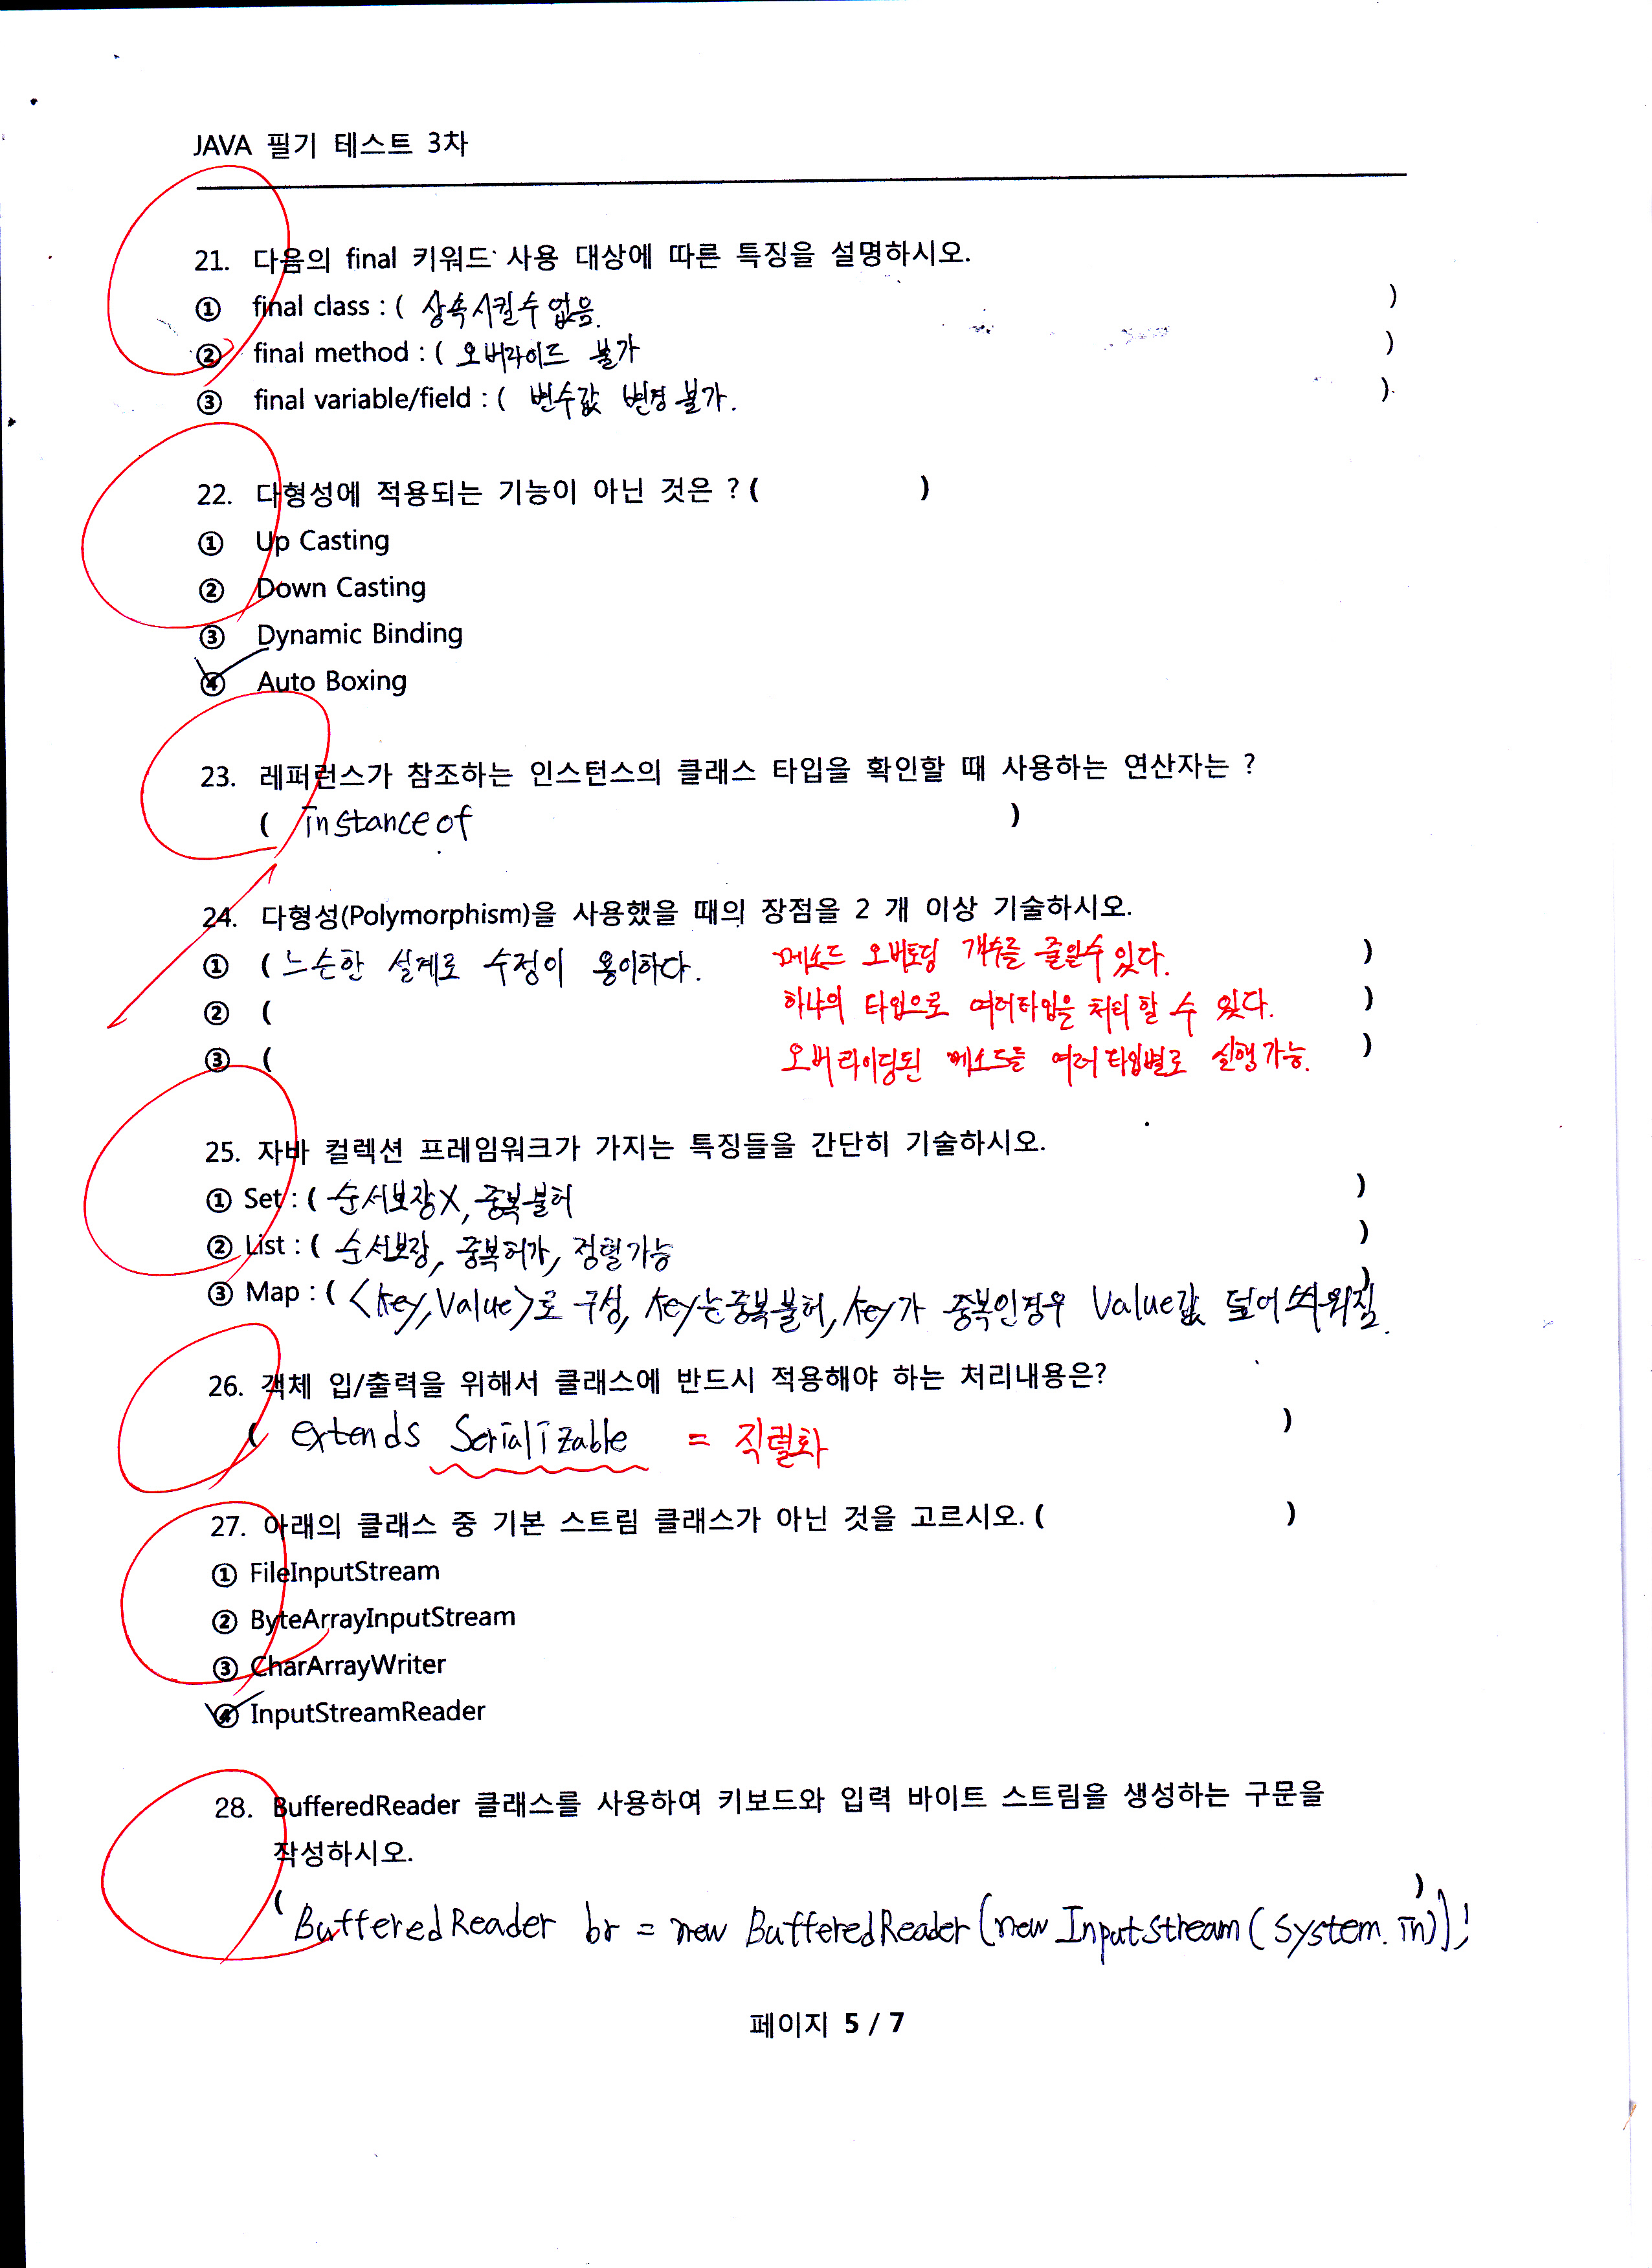 JAVA 필기 테스트 3차
21. 다음의 final 키워드 사용 대상에 따른 특징을 설명하시오.
① final class : ( 상속시킬수 없음. )
② final method : ( 오버라이드 불가 )
③ final variable/field : ( 변수값 변경 불가. )
22. 다형성에 적용되는 기능이 아닌 것은 ? ( )
① Up Casting
② Down Casting
③ Dynamic Binding
④ Auto Boxing
23. 레퍼런스가 참조하는 인스턴스의 클래스 타입을 확인할 때 사용하는 연산자는 ?
( instanceof )
24. 다형성(Polymorphism)을 사용했을 때의 장점을 2 개 이상 기술하시오.
① ( 느슨한 설계로 수정이 용이하다. 메소드 오버로딩 개수를 줄일수 있다. )
② ( 하나의 타입으로 여러타입을 처리 할 수 있다. )
③ ( 오버라이딩된 메소드를 여러타입별로 실행가능. )
25. 자바 컬렉션 프레임워크가 가지는 특징들을 간단히 기술하시오.
① Set : ( 순서보장X, 중복불허 )
② List : ( 순서보장, 중복허가, 정렬가능 )
③ Map : ( <key, Value>로 구성, key는 중복불허, key가 중복인경우 Value값 덮어씌워짐. )
26. 객체 입/출력을 위해서 클래스에 반드시 적용해야 하는 처리내용은?
( extends Serializable = 직렬화 )
27. 아래의 클래스 중 기본 스트림 클래스가 아닌 것을 고르시오. ( )
① FileInputStream
② ByteArrayInputStream
③ CharArrayWriter
④ InputStreamReader
28. BufferedReader 클래스를 사용하여 키보드와 입력 바이트 스트림을 생성하는 구문을
작성하시오.
( BufferedReader br = new BufferedReader(new InputStream(System.in)); )
페이지 5 / 7